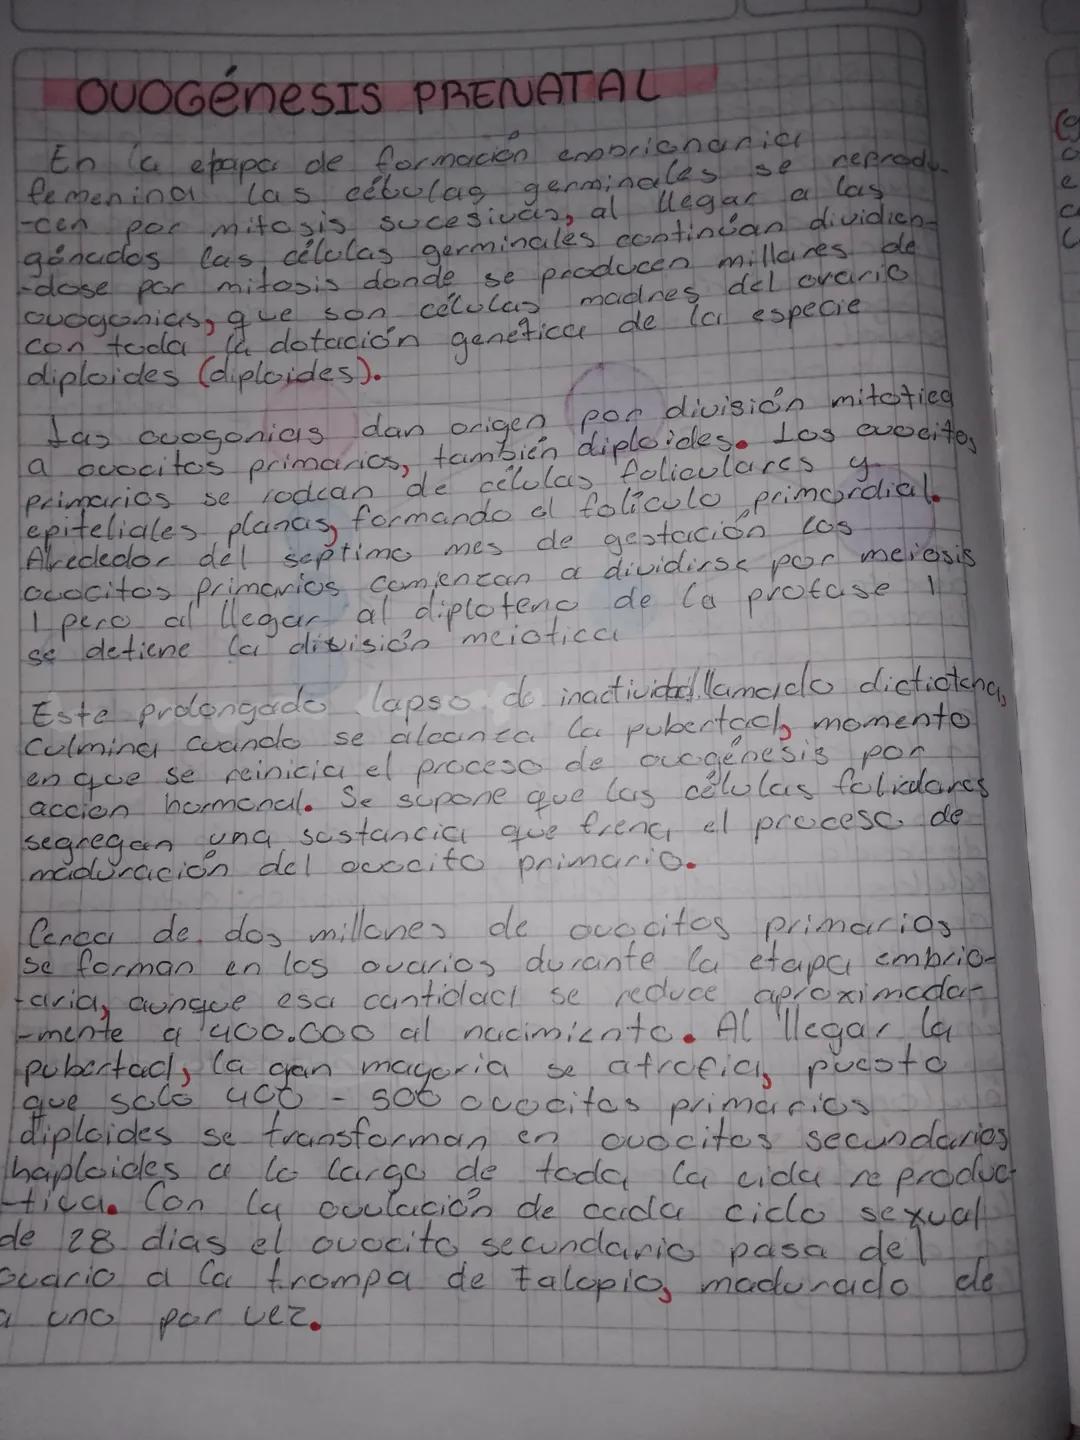 OVOGÉNESIS PRENATAL
En la etapa de formación embrionaria
femenina las células germinales se reprodu-
-cen por mitosis sucesivas, al llegar a las
gónadas las células germinales continúan dividien-
-dose por mitosis donde se producen millares de
ovogonias, que son células madres del ovario
con toda la dotación genética de la especie
diploides (diploides).
Las ovogonias dan origen por división mitotica
a ovocitos primarios, también diploides. Los ovocitos
primarios se rodean de células foliculares y
epiteliales planas, formando el folículo primordial.
Alrededor del septimo mes de gestación los
ovocitos primarios comienzan a dividirse por meiosis
1 pero al llegar al diploteno de la profase 1
se detiene la división meiotica
Este prolongado lapso de inactividad llamado dictiotena,
culmina cuando se alcanza la pubertad, momento
en que se reinicia el proceso de ovogénesis por
accion hormonal. Se supone que las células foliculares
segregan una sustancia que frena el proceso de
maduración del ovocito primario.
Cerca de dos millones de ovocitos primarios
se forman en los ovarios durante la etapa embrio-
taria, aunque esa cantidad se reduce aproximada-
-mente a 400.000 al nacimiento. Al llegar la
pubertad, la gran mayoria se atrofia, puesto
que solo 400 - 500 ovocitos primarios
diploides se transforman en ovocitos secundarios
haploides a lo largo de toda la vida reproduc-
-tiva. Con la ovulación de cada ciclo sexual
de 28 dias el ovocito secundario pasa del
ovario a la trompa de falopio, madurado de
a uno por vez.